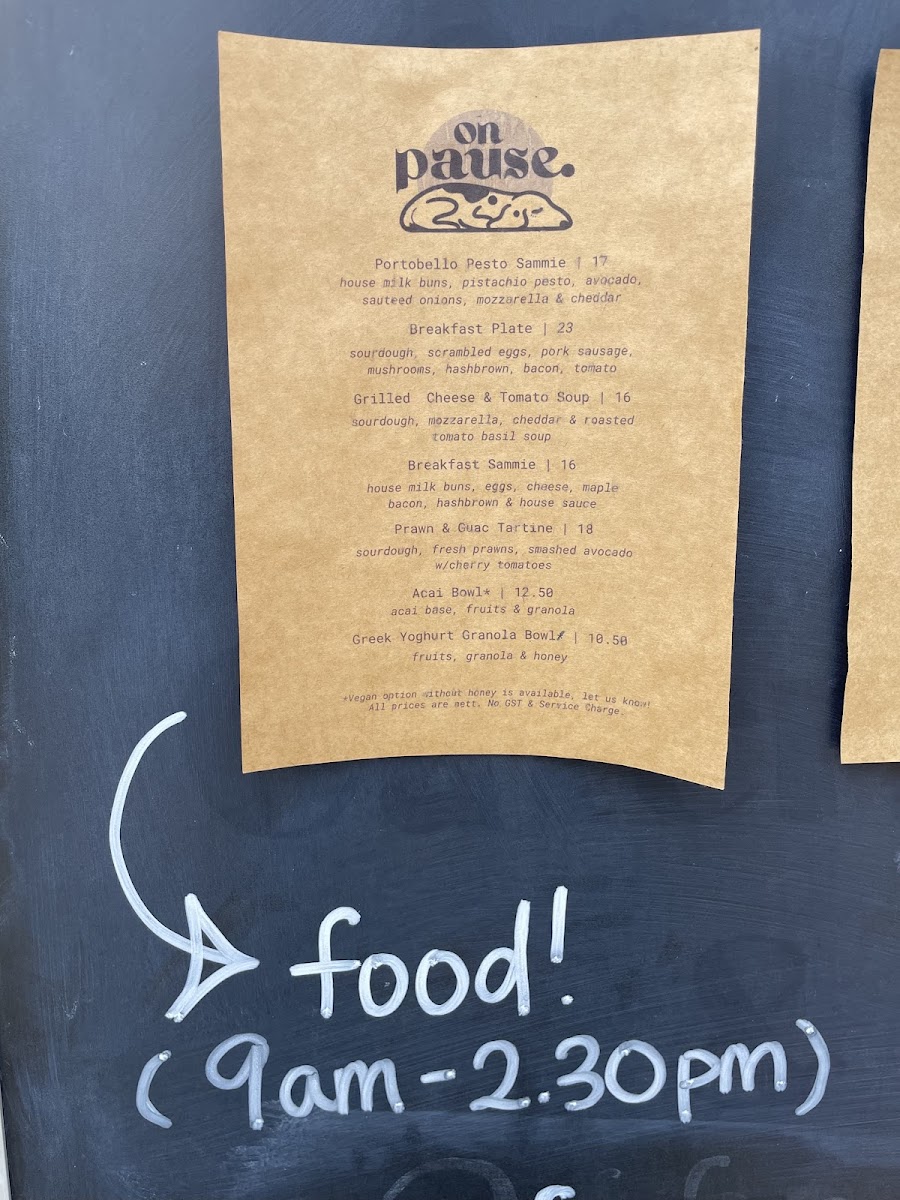 on
pause.
Portobello Pesto Sammie | 17
house milk buns, pistachio pesto, avocado,
sauteed onions, mozzarella & cheddar
Breakfast Plate | 23
sourdough, scrambled eggs, pork sausage,
mushrooms, hashbrown, bacon, tomato
Grilled Cheese & Tomato Soup | 16
sourdough, mozzarella, cheddar & roasted
tomato basil soup
Breakfast Sammie | 16
house milk buns, eggs, cheese, maple
bacon, hashbrown & house sauce
Prawn & Guac Tartine | 18
sourdough, fresh prawns, smashed avocado
w/cherry tomatoes
Acai Bowl* | 12.50
acai base, fruits & granola
Greek Yoghurt Granola Bowl | 10.50
fruits, granola & honey
*Vegan option without honey is available, let us know!
All prices are nett. No GST & Service Charge.
food!
(9am-2.30pm)